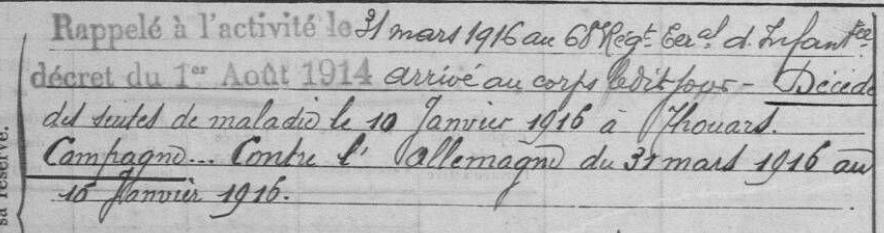 Rappelé à l'activité le 31 mars 1916 au 68 Régt Teral d. Infantrie
décret du 1er Août 1914 arrivé au corps ledit jour - Décédé
des suites de maladie le 10 Janvier 1916 à Thouars.
Campagne... Contre l'Allemagne du 31 mars 1916 au
10 Janvier 1916.
sa réserve.